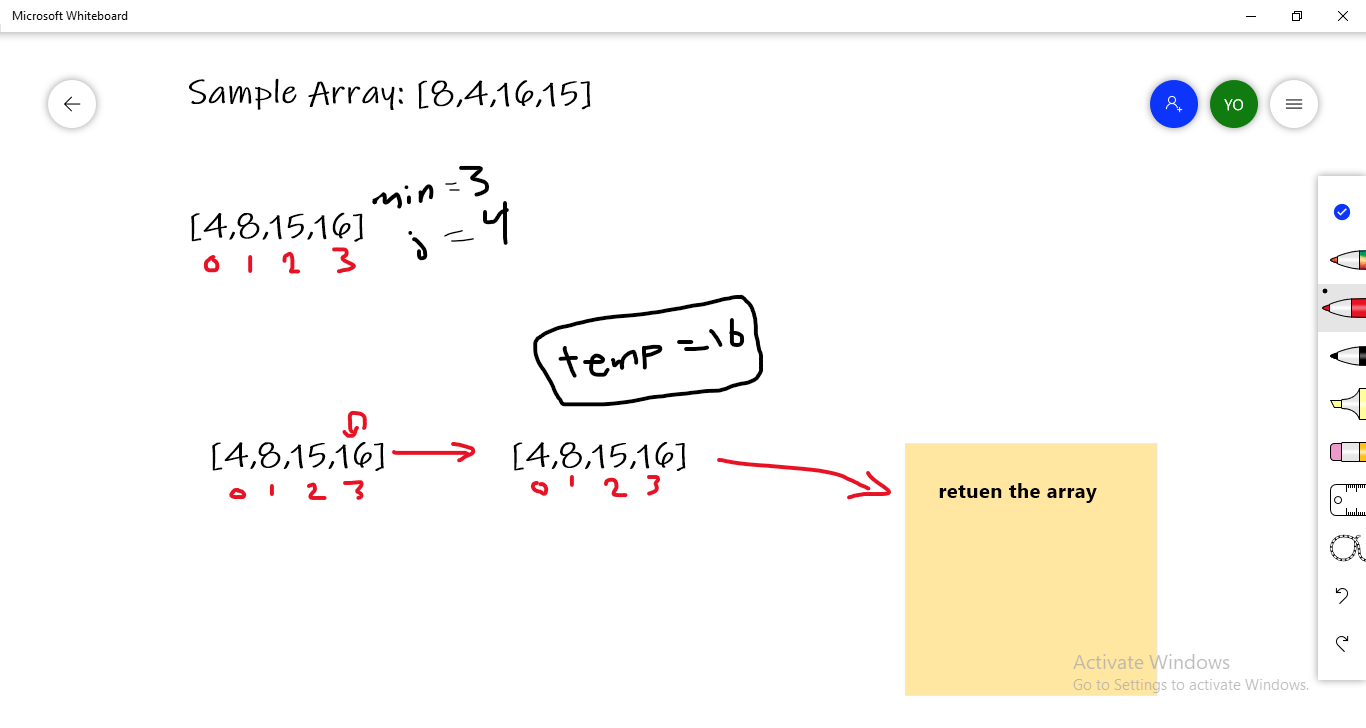 Microsoft Whiteboard
Sample Array: [8,4,16,15]
YO
min = 3
[4,8,15,16]
j = 4
0 1 2 3
temp = 16
[4,8,15,16]
0 1 2 3
[4,8,15,16]
0 1 2 3
retuen the array
Activate Windows
Go to Settings to activate Windows.